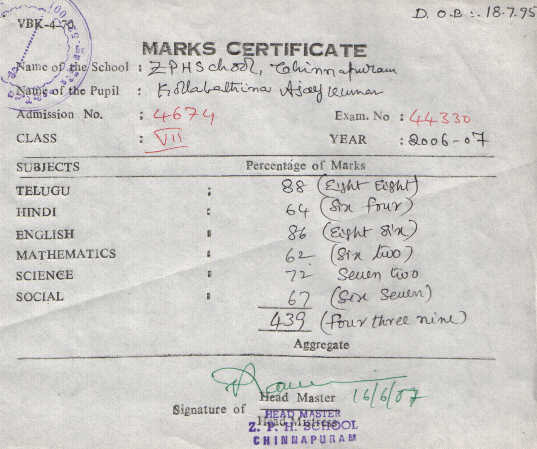 D. O. B :- 18-7-95
VBK-4-70
MARKS CERTIFICATE
Name of the School : Z P H School, Chinnapuram
Name of the Pupil : Kollabathina Ajay Kumar
Admission No. : 4674 Exam. No : 44330
CLASS : VII YEAR : 2006-07
SUBJECTS Percentage of Marks
TELUGU : 88 (Eight Eight)
HINDI : 64 (Six four)
ENGLISH : 86 (Eight Six)
MATHEMATICS : 62 (Six two)
SCIENCE : 72 Seven two
SOCIAL : 67 (Six Seven)
439 (four three nine)
Aggregate
Signature of Head Master 16/6/07
Head Mistress
HEAD MASTER
Z. P. H. SCHOOL
CHINNAPURAM